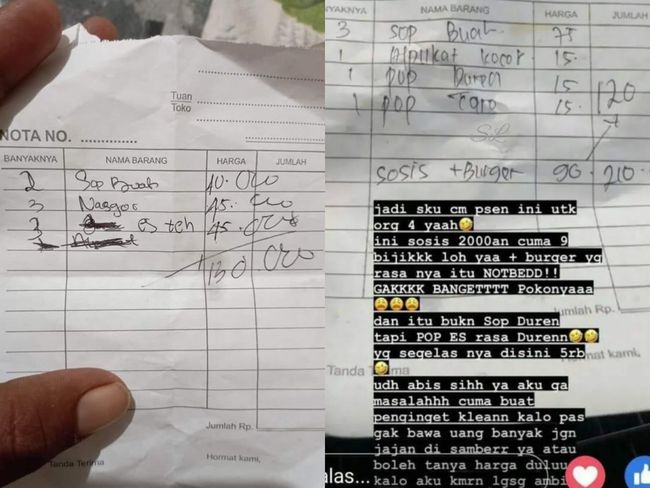 Tuan
Toko
NOTA NO.
BANYAKNYA NAMA BARANG HARGA JUMLAH
2 Sop Buah 40.000
3 Nasgor 45.000
3 es teh 45.000
130.000
Jumlah Rp.
Tanda Terima Hormat kami,
YAKNYA NAMA BARANG HARGA JUMLAH
3 Sop Buah 75
1 Alpukat kocor 15.
1 pop Duren 15
1 pop 15. 120
sosis + Burger 90. 210.
jadi sku cm psen ini utk
org 4 yaah🤣
ini sosis 2000an cuma 9
bijikkk loh yaa + burger yg
rasa nya itu NOTBEDD!!
GAKKKK BANGETTTT Pokonyaaa
😩😩😩
dan itu bukn Sop Duren
tapi POP ES rasa Durenn🤣🤣
yg segelas nya disini 5rb
🤣
udh abis sihh ya aku ga
masalahhh cuma buat
penginget kleann kalo pas
gak bawa uang banyak jgn
jajan di samberr ya atau
boleh tanya harga duluu
kalo aku kmrn lgsg ambi
umlah Rp.
Hormat kami,
Tanda Terima
alas...